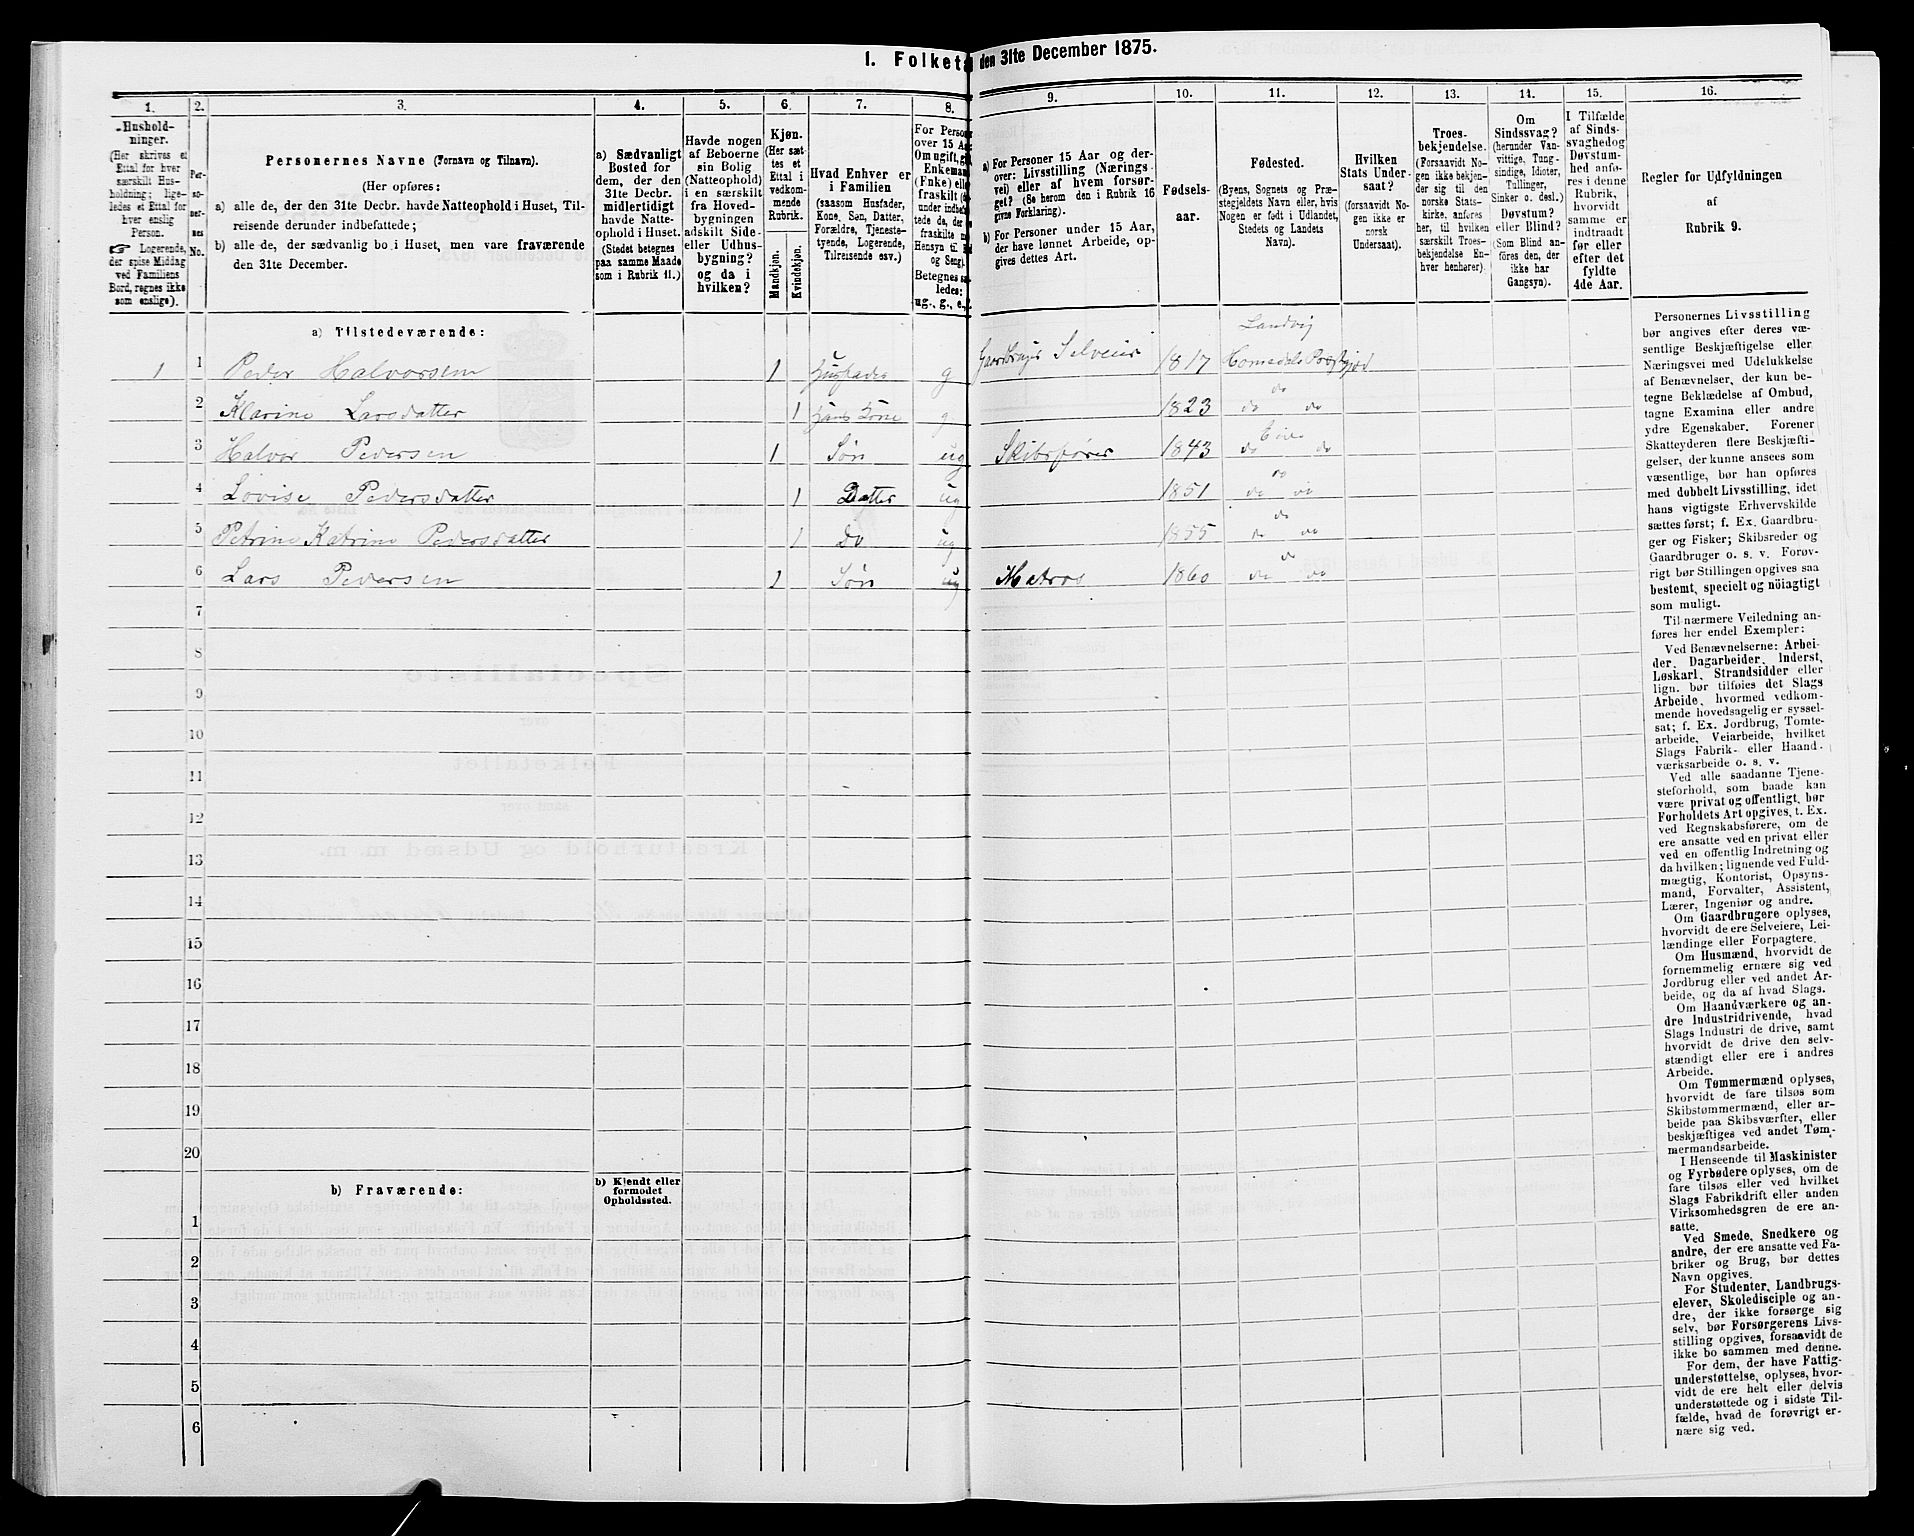 1. Folketal den 31te December 1875.
1. 2. 3. 4. 5. 6. 7. 8. 9. 10. 11. 12. 13. 14. 15. 16.
Hushold-
ninger.
(Her skrives et
Ettal for hver
særskilt Hus-
holdning; lige-
ledes et Ettal for
hver enslig
Person.
☞ Logerende,
der spise Middag
ved Familiens
Bord, regnes ikke
som enslige).
Per-
so-
ner-
nes
No.
Personernes Navne (Fornavn og Tilnavn).
(Her opføres:
a) alle de, der den 31te Decbr. havde Natteophold i Huset, Til-
reisende derunder indbefattede;
b) alle de, der sædvanlig bo i Huset, men vare fraværende
den 31te December.
a) Sædvanligt
Bosted for
dem, der den
31te Decbr.
midlertidigt
havde Natte-
ophold i Huset.
(Stedet betegnes
paa samme Maade
som i Rubrik 11.)
Havde nogen
af Beboerne
sin Bolig
(Natteophold)
i en særskilt
fra Hoved-
bygningen
adskilt Side-
eller Udhus-
bygning?
og da i
hvilken?
Kjøn.
(Her sæt-
tes et
Ettal i
vedkom-
mende
Rubrik.
Mandkjøn.
Kvindekjøn.
Hvad Enhver er
i Familien
(saasom Husfader,
Kone, Søn, Datter,
Forældre, Tjeneste-
tyende, Logerende,
Tilreisende osv.)
For Person
over 15 Aa
Om ugift, gi
Enkemand
(Enke) ell
fraskilt
under indbe
tede da, de
fraskilte m
Hensyn til
og Seng).
Betegnes sa
ledes:
ug., g., e., f.
a) For Personer 15 Aar og der-
over: Livsstilling (Nærings-
vei) eller af hvem forsør-
get? (Se herom den i Rubrik 16
givne Forklaring).
b) For Personer under 15 Aar,
der have lønnet Arbeide, op-
gives dettes Art.
Fødsels-
aar.
Fødested.
(Byens, Sognets og Præ-
stegjeldets Navn eller, hvis
Nogen er født i Udlandet,
Stedets og Landets
Navn).
Hvilken
Stats Under-
saat?
(forsaavidt No-
gen ikke er
norsk
Undersaat).
Troes-
bekjendelse.
(Forsaavidt No-
gen ikke beken-
der sig til den
norske Stats-
kirke, anføres
her, til hvilken
særskilt Troes-
bekjendelse En-
hver henhører).
Om
Sindssvag?
(herunder Van-
vittige, Tung-
sindige, Idioter,
Tullinger,
Sinker o. desl.).
Døvstum?
eller Blind?
(Som Blind an-
føres den, der
ikke har
Gangsyn).
I Tilfælde
af Sinds-
svaghed og
Døvstum-
hed anfø-
res i denne
Rubrik,
hvorvidt
samme er
indtraadt
før eller
efter det
fyldte
4de Aar.
Regler for Udfyldningen
af
Rubrik 9.
a) Tilstedeværende:
1 1 Peder Halvorsen 1 Husfader g Gaardbruger Selveier 1817 Landvig Homedals Præstgjed
2 Karine Larsdatter 1 Hans Kone g 1823 do do do
3 Halvor Pedersen 1 Søn ug Skibsfører 1843 do do
4 Lovise Pedersdatter 1 Datter ug 1851 do do do
5 Petrine Katrine Pedersdatter 1 Do ug 1855 do do do
6 Lars Pedersen 1 Søn ug Matros 1860 do do do
7
8
9
10
11
12
13
14
15
16
17
18
19
20
b) Fraværende:
b) Kjendt eller
formodet
Opholdssted.
1
2
3
4
5
6
Personernes Livsstilling
bør angives efter deres væ-
sentlige Beskjæftigelse eller
Næringsvei med Udelukkelse
af Benævnelser, der kun be-
tegne Beklædelse af Ombud,
tagne Examina eller andre
ydre Egenskaber. Forener
Skatteyderen flere Beskjæfti-
gelser, der kunne ansees som
væsentlige, bør han opføres
med dobbelt Livsstilling, idet
hans vigtigste Erhvervskilde
sættes først; f. Ex. Gaardbru-
ger og Fisker; Skibsreder og
Gaardbruger o. s. v. Forøv-
rigt bør Stillingen opgives saa
bestemt, specielt og nöiagtigt
som muligt.
Til nærmere Veiledning an-
føres her endel Exempler:
Ved Benævnelserne: Arbei-
der, Dagarbeider, Inderst,
Løskarl, Strandsidder eller
lign. bør tilføies det Slags
Arbeide, hvormed vedkom-
mende hovedsagelig er syssel-
sat; f. Ex. Jordbrug, Tomte-
arbeide, Veiarbeide, hvilket
Slags Fabrik- eller Haand-
værksarbeide o. s. v.
Ved alle saadanne Tjene-
steforhold, som baade kan
være privat og offentligt, bør
Forholdets Art opgives, t. Ex.
ved Regnskabsførere, om de
ere ansatte ved en privat eller
ved en offentlig Indretning og
da hvilken; lignende ved Fuld-
mægtig, Kontorist, Opsyns-
mand, Forvalter, Assistent,
Lærer, Ingeniør og andre.
Om Gaardbrugere oplyses,
hvorvidt de ere Selveiere, Lei-
lændinge eller Forpagtere.
Om Husmænd, hvorvidt de
fornemmelig ernære sig ved
Jordbrug eller ved andet Ar-
beide, og da af hvad Slags.
Om Haandværkere og an-
dre Industridrivende, hvad
Slags Industri de drive, samt
hvorvidt de drive den selv-
stændigt eller ere i andres
Arbeide.
Om Tømmermænd oplyses,
hvorvidt de fare tilsøs som
Skibstømmermænd, eller ar-
beide paa Skibsværfter, eller
beskjæftiges ved andet Tøm-
mermandsarbeide.
I Henseende til Maskinister
og Fyrbødere oplyses, om de
fare tilsøs eller ved hvilket
Slags Fabrikdrift eller anden
Virksomhedsgren de ere an-
satte.
Ved Smede, Snedkere og
andre, der ere ansatte ved Fa-
briker og Brug, bør dettes
Navn opgives.
For Studenter, Landbrugs-
elever, Skoledisciple og an-
dre, der ikke forsørge sig
selv, bør Forsørgerens Livs-
stilling opgives, forsaavidt de
ikke bo sammen med denne.
For dem, der have Fattig-
understøttelse, oplyses, hvor-
vidt de ere helt eller delvis
understøttede og i sidste Til-
fælde, hvad de forøvrigt er-
nære sig ved.